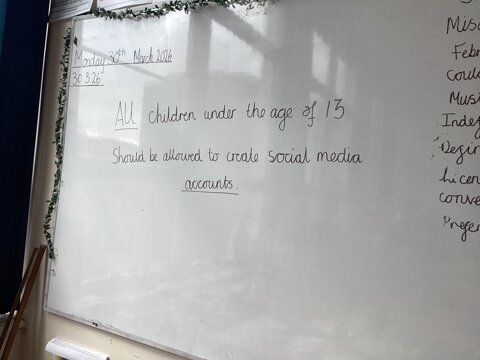 Monday 30th March 2026
30.3.26
All children under the age of 13
Should be allowed to create social media
accounts.
Misc
Febr
could
Musi
Indep
conve